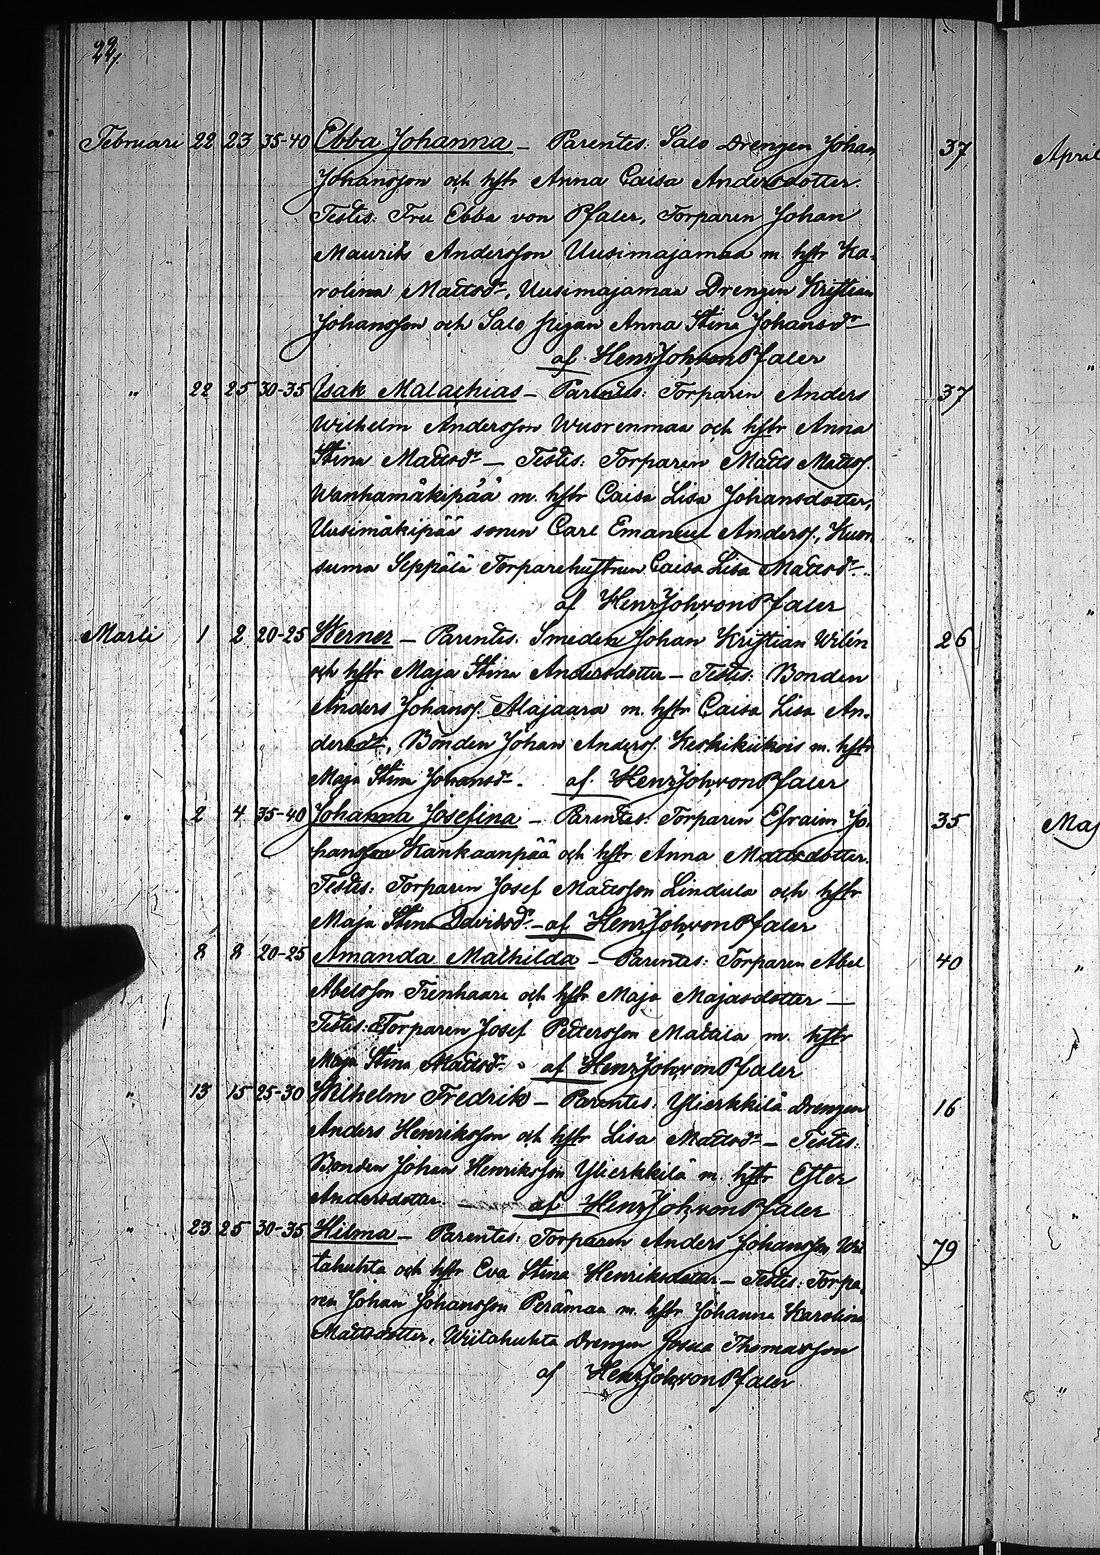 22,
Februari 22 23 35-40 Ebba Johanna – Parentes: Salo Drengen Johan 37
Johansson och hstr Anna Caisa Andersdotter.
Testes: Fru Ebba von Pfaler, Torparen Johan
Maurits Andersson Uusimajamaa m. hstr Ka-
rolina Mattsdr, Uusimajamaa Drengen Kristian
Johansson och Salo pigan Anna Stina Johansdr
af HenrJohvonPfaler
„ 22 25 30-35 Isak Malachias – Parentes: Torparen Anders 37
Wilhelm Andersson Wuorenmaa och hstr Anna
Stina Mattsdr – Testes: Torparen Matts Mattss.
Wanhamäkipää m. hstr Caisa Lisa Johansdotter,
Uusimäkipää sonen Carl Emanuel Anderss., Kuor-
suma Seppälä Torparehustrun Caisa Lisa Mattsdr.
af HenrJohvonPfaler
Marti 1 2 20-25 Werner – Parentes: Smeden Johan Kristian Wilén 26
och hstr Maja Stina Andersdotter – Testes: Bonden
Anders Johanss. Alajaara m. hstr Caisa Lisa An-
dersdr, Bonden Johan Anderss. Keskikukois m. hstr
Maja Stina Johansdr. af HenrJohvonPfaler
„ 2 4 35-40 Johanna Josefina – Parentes: Torparen Efraim Jo- 35
hansson Kankaanpää och hstr Anna Mattsdotter.
Testes: Torparen Josef Mattsson Lindula och hstr
Maja Stina Davidsdr. – af HenrJohvonPfaler
8 8 20-25 Amanda Mathilda – Parentes: Torparen Abel 40
Abelsson Trenhaara och hstr Maja Majasdotter –
Testes: Torparen Josef Pettersson Mattila m. hstr
Maja Stina Mattsdr. af HenrJohvonPfaler
„ 13 15 25-30 Wilhelm Fredrik – Parentes: Ylierkkilä Drengen 16
Anders Henriksson och hstr Lisa Mattsdr – Testes:
Bonden Johan Henriksson Ylierkkilä m. hstr Ester
Andersdotter. af HenrJohvonPfaler
„ 23 25 30-35 Hilma – Parentes: Torparen Anders Johansson Wii- 79
tahuhta och hstr Eva Stina Henriksdotter – Testes: Torpa-
ren Johan Johansson Perämaa m. hstr Johanna Karolina
Mattsdotter, Wiitahuhta Drengen Josua Thomasson
af HenrJohvonPfaler
April
„
„
Maj
„
„
„
„